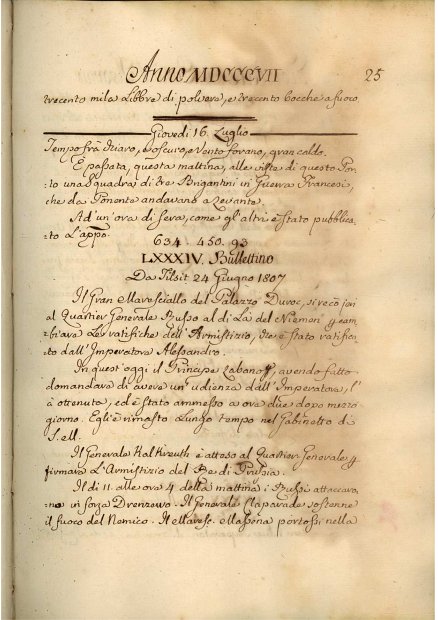 Anno MDCCCVII 25
trecento mila Libbre di polvere, e trecento bocche a fuoco
Giovedì 16. Luglio
Tempo frà chiaro, e oscuro, e vento forano, gran caldo.
È passata, questa mattina, alle viste di questo Por-
to una Squadra di tre Brigantini in Guerra Francesi,
che da Ponente andavano a Levante.
Ad un' ora di sera, come gl' altri è stato pubblica-
to L' appo.
634. 450. 93
LXXXIV. Bullettino
Da Tilsit 24 Giugno 1807
Il Gran Maresciallo del Palazzo Duroc, si recò jeri
al Quartier Generale Russo al di Là del Niemen p cam-
biare Le ratifiche dell' Armistizio, che è stato ratifica-
to dall' Imperatore Alessandro.
In quest' oggi il Principe Labanoff, avendo fatto
domandare di avere un' udienza dall' Imperatore, l'
à ottenuto, ed è stato ammesso a ore due dopo mezzo
giorno. Egli è rimasto Lungo tempo nel Gabinetto di
S. M.
Il Generale Kalkreuth è atteso al Quartier Generale p
firmare L' Armistizio del Re di Prussia.
Il di 11. alle ore 4 della mattina i Russi attaccaro-
no in forza Drenzewo. Il Generale Claparede sostenne
il fuoco del Nemico. Il Maresc. Massena portossi nella